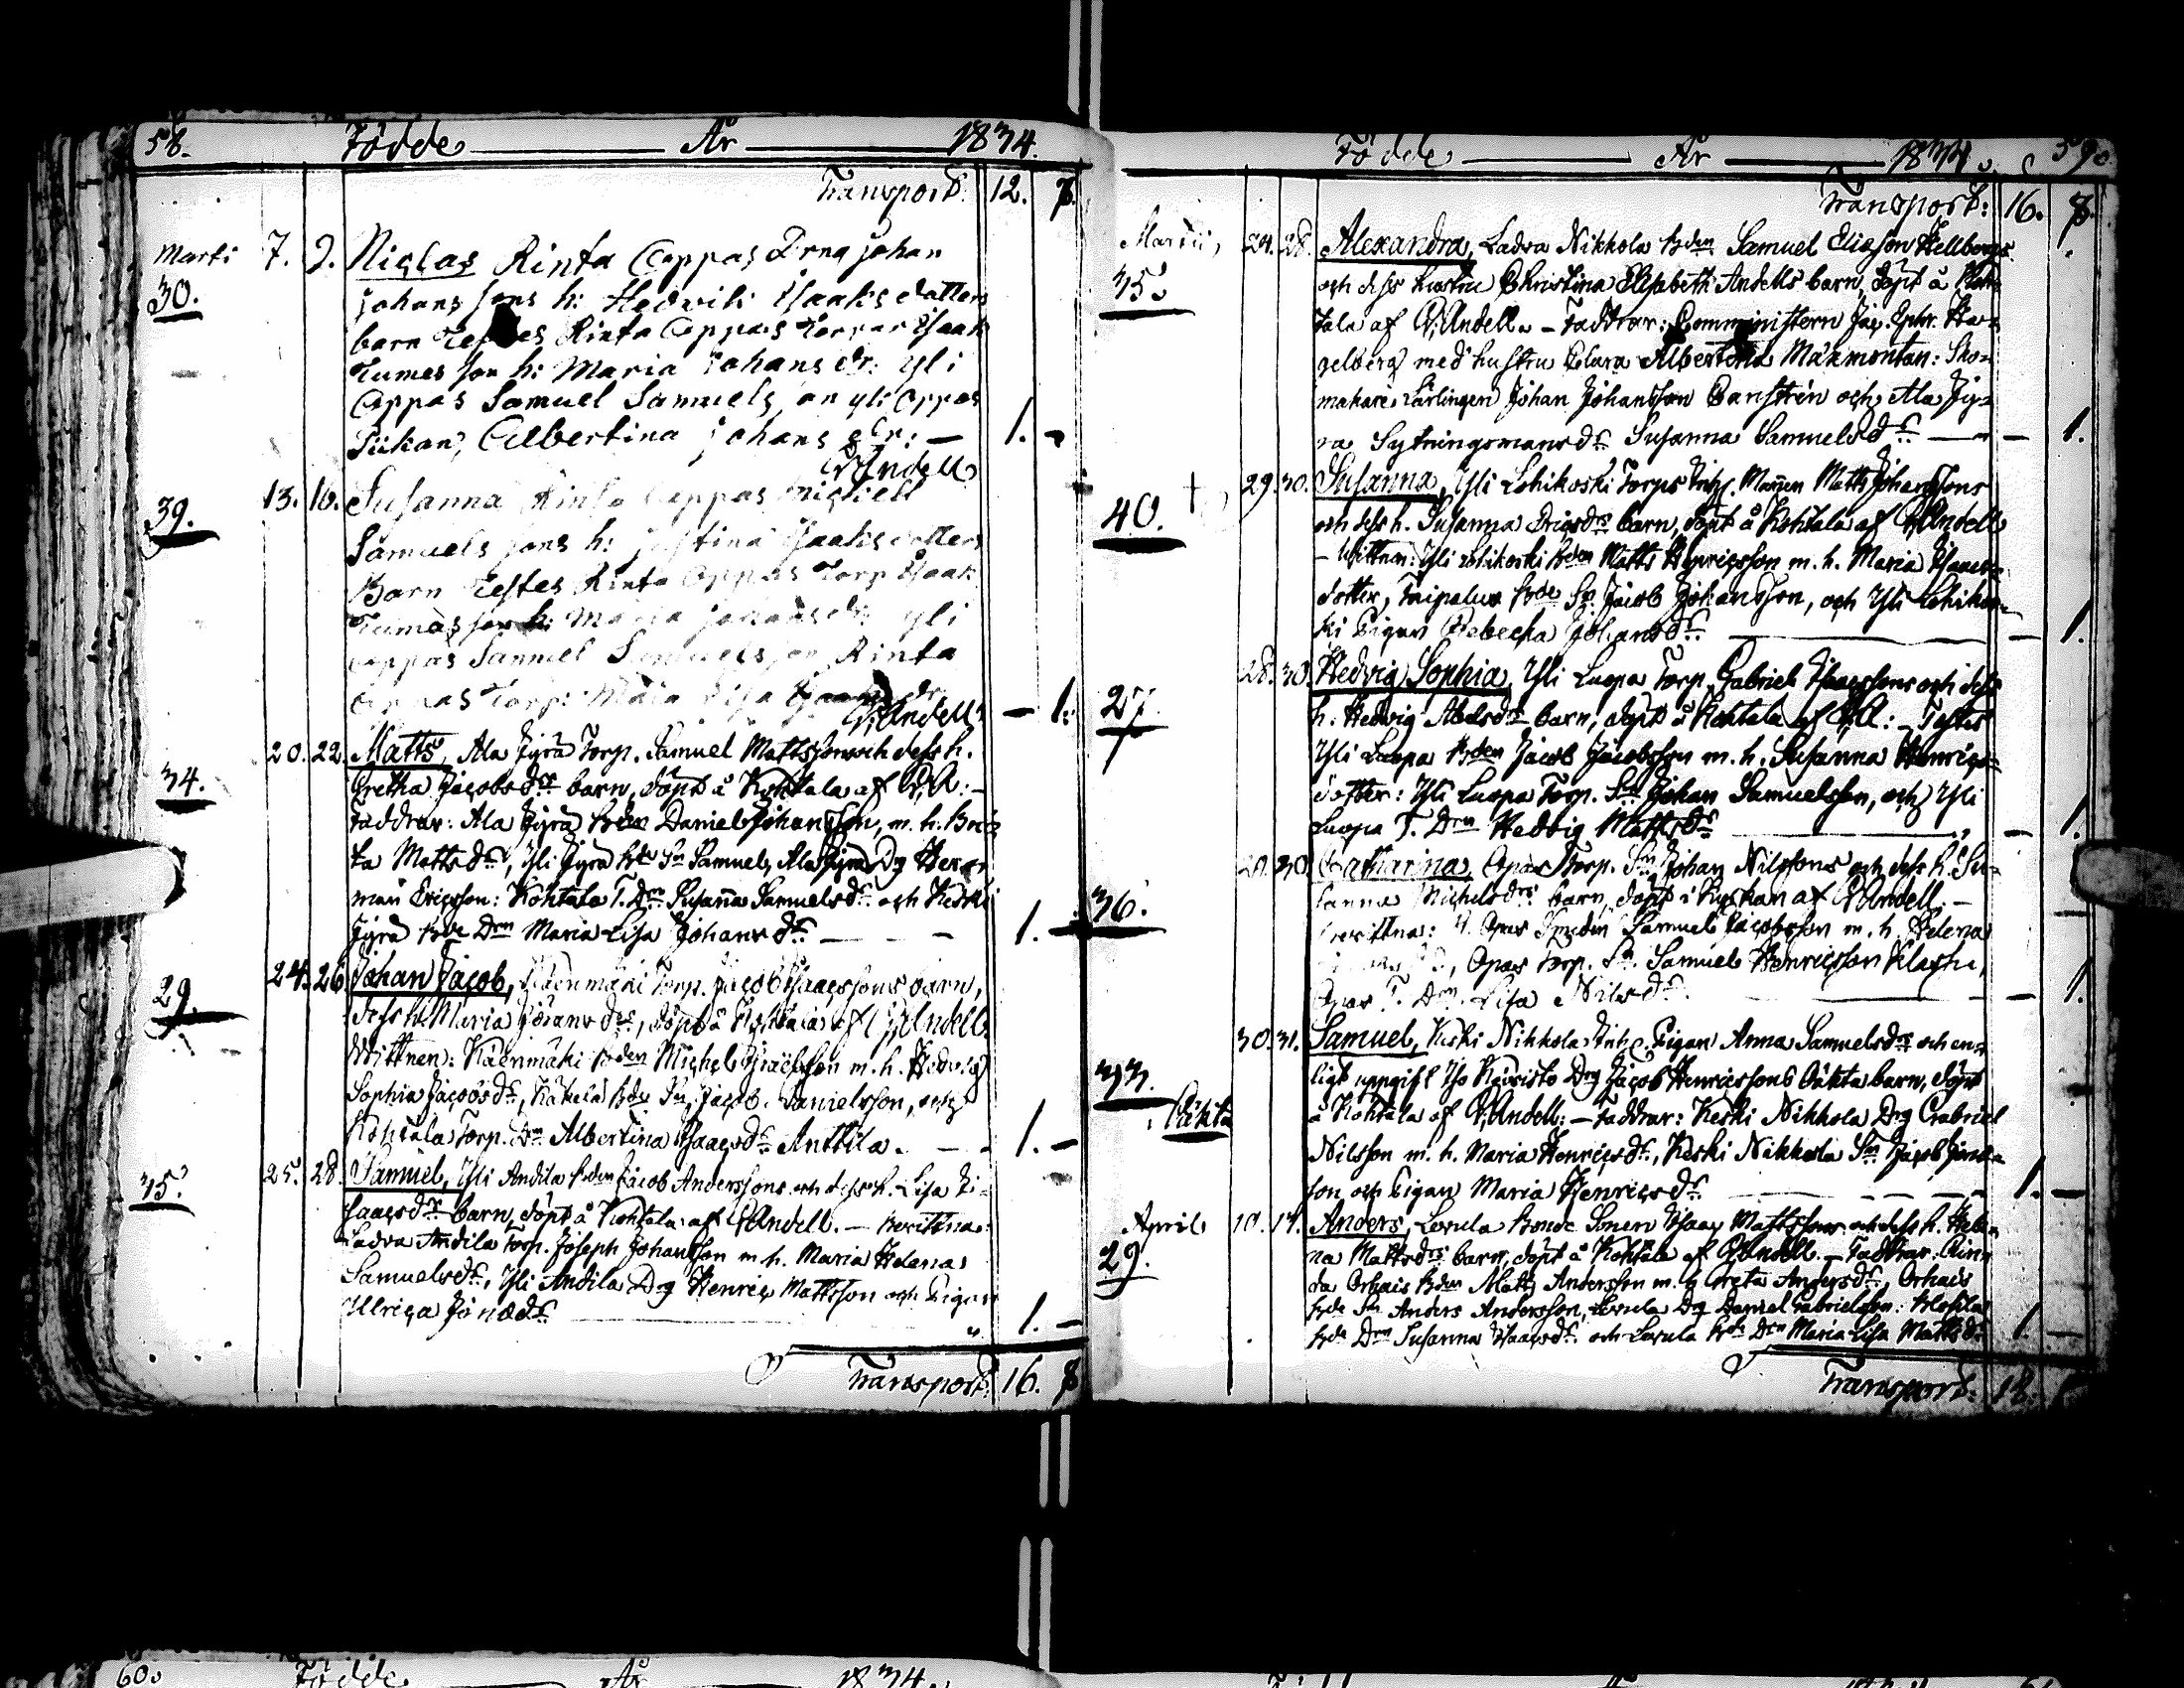 58. Födde År 1834.
Transport: 12. 8.
Marti 7. 9. Niclas Rinta Oppas Drng Johan
30. Johans sons h: Hedvik Isaaks dotters
barn Testes Rinta Oppas Torpar Isaak
Tumas son h: Maria Johans dr: Yli
Oppas Samuel Samuels son yli Oppas
Pikan, Albertina Johans dr: — 1. -
Andell
39. 13. 16. Susanna Rinta Oppas
Samuels sons h: Justina Isaaks dotters
Barn Testes Rinta Oppas Torp Isaak
Tumas son h: Maria Johans dr: Yli
Oppas Samuel Samuelsson Rinta
Oppas Torp: Maia Lisa dr.
Andell — 1.
34. 20. 22. Matts, Ala Jyrä Torp. Samuel Mattssons och dess h.
Gretha Jacobsdrs barn, döpt å Kohtala af
Faddrar: Ala Jyrä Bden Daniel Johansson, m. h. Brita
Mattsdr, Yli Jyrä Bde Sn Samuel, Ala Jyrä Dg Herman
Ericsson: Kohtala T. Drn Susanna Samuelsdr och Keski
Jyrä Bde Drn Maria Lisa Johansdr — 1. —
29. 24. 26. Johan Jacob, Käenmäki Torp. Jacob Isaacssons barn,
dess h. Maria Johansdrs, döpt å Kohtala af Andell.
Wittnen: Käenmäki Bden Michel m. h. Hedvig
Sophia Jacobsdr, Bde Sn Jacob Danielsson, och
Kohtala Torp. Drn Albertina Isaacsdr Anttila. — 1. —
35. 25. 28. Samuel, Yli Andila Bden Jacob Anderssons och dess h. Lisa
Isaacsdrs barn, döpt å Kohtala af Andell. —
Ladva Andila Torp. Joseph Johansson m. h. Maria Helena
Samuelsdr, Yli Andila Dg Henric Mattsson och Pigan
Ulrica Jonædr. — 1. —
Transport: 16. 8
Födde År 1834. 59.
Transport: 16. 8.
Martii, 24. 28. Alexandra, Ladva Nikkola Bden Samuel Eliasson Hellbergs
35. och dess hustru Christina Elisabeth Andells barn, döpt å Koh-
tala af Andell. — Faddrar: Comministern Jac. Ephr. Ha-
gelberg med hustru Clara Albertina Märmontan: Sko-
makare Lärlingen Johan Johansson Banström och Ala Jy-
rä Sytningsmansdr Susanna Samuelsdr. — 1.
40. 29. 30. Susanna, Yli Lohikoski Torps Inh. Mannen Matts Johanssons
och dess h. Susanna Ericsdrs barn, döpt å Kohtala af Andell
— Wittnen: Yli Lohikoski Bden Matts Henricsson m. h. Maria Isaacs-
dotter, Taipalus Bde Sn Jacob Johansson, och Yli Lohikos-
ki Pigan Rebecka Johansdr. — 1.
27. 28. 30. Hedvig Sophia, Yli Luopa Torp. Gabriel Isaacssons och dess
h. Hedvig Abelsdrs barn, döpt å Kohtala af A: — Testes
Yli Luopa Bden Jacob Jacobsson m. h. Susanna Henrics-
dotter: Yli Luopa Torp. Sn Johan Samuelsson, och Yli
Luopa T. Drn Hedvig Mattsdr — 1.
36. 29. 30. Catharina, Opas Torp. Sn Johan Nilssons och dess h. Su-
sanna Michelsdrs barn, döpt i Kyrkan af Andell. —
Opas Samuel Jacobsson m. h. Helena
Opas Torp. Sn Samuel Henricsson
Opas T. Drn. Lisa Nilsdr. — 1.
33. 30. 31. Samuel, Keski Nikkola Inh. Pigan Anna Samuelsdrs och en-
ligt uppgift Iso Koivisto Dng Jacob Henricssons Oäkta barn, döpt
Oäkta å Kohtala af Andell: — Faddrar: Keski Nikkola Dng Gabriel
Nilsson m. h. Maria Henricsdr, Keski Nikkola Sn Jacob
son och Pigan Maria Henricsdr — 1. —
April 10. 14. Anders, Lovula Bonde Sonen Isaac Mattssons och dess h. Hele-
29. na Mattsdrs barn, döpt å Kohtala af Andell. — Faddrar: Rin-
ta Orhais Bden Matts Andersson m. h. Greta Andersdr, Orhais
Bde Sn Anders Andersson, Lovula Dg Daniel Gabrielsson:
Bde Drn Susanna Isaacsdr och Lovula Bde Drn Maria Lisa Mattsdr 1. —
Transport: 18.
60. Födde År 1834.